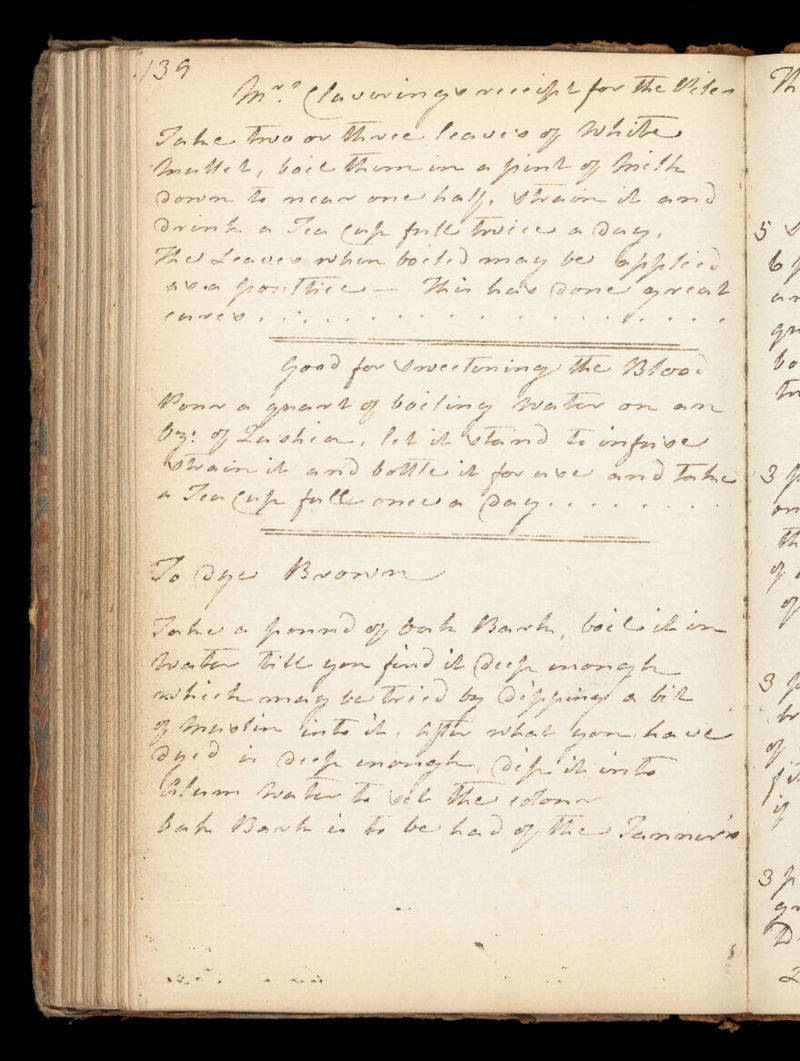 139
Mrs. Claverings receipt for the Piles
Take two or three leaves of White
Mullet, boil them in a pint of Milk
down to near one half, strain it and
drink a Tea Cup full twice a day,
The Leaves when boiled may be applied
as a poultice — This has done great
cures . . . . . . . . . . . . . . .
Good for Sweetening the Blood
Pour a quart of boiling Water on an
oz: of Quashia, let it stand to infuse
strain it and bottle it for use and take
a Tea Cup full once a day . . . . . . . . .
To dye Brown
Take a pound of oak Bark, boil it in
Water till you find it deep enough
which may be tried by dipping a bit
of Muslin into it, after what you have
dyed is deep enough, dip it into
Alum Water to set the colour
Oak Bark is to be had of the Tanner's
5
6
3
3
3